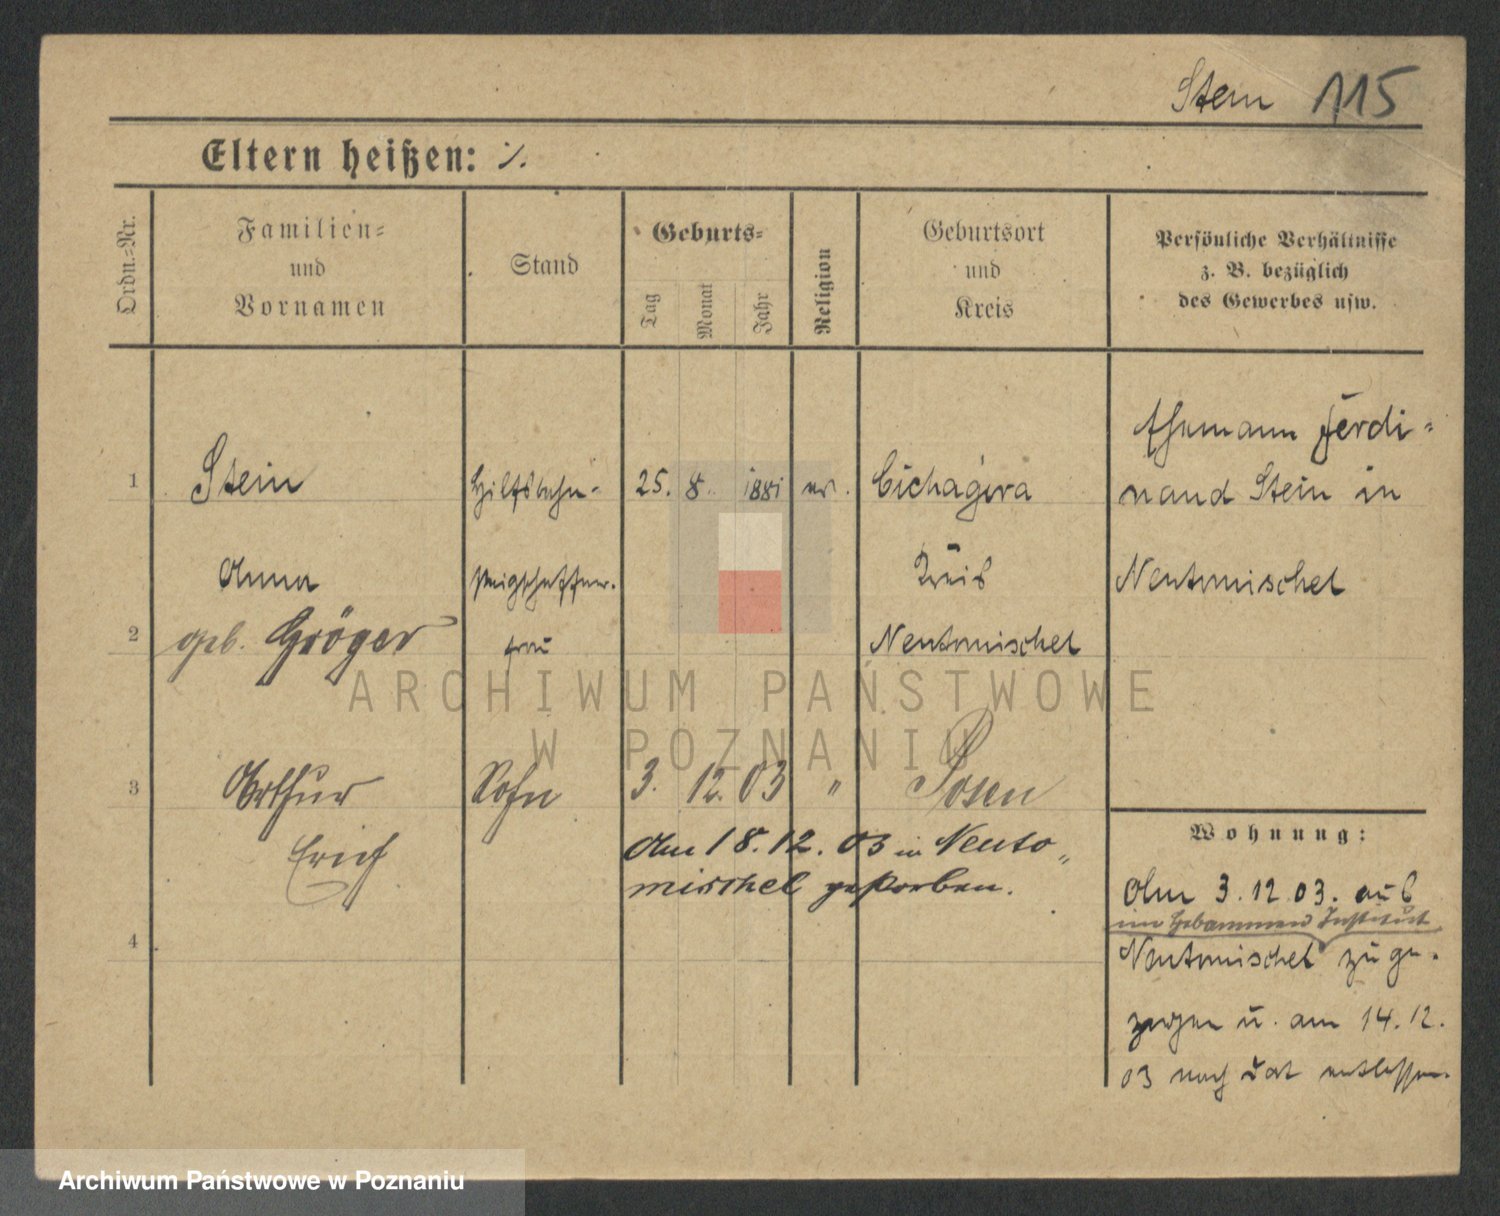 Stein 115
Eltern heißen: ·/.
Ordn.-Nr.
Familien- und Vornamen
Stand
Geburts-
Tag
Monat
Jahr
Religion
Geburtsort und Kreis
Persönliche Verhältnisse z. B. bezüglich des Gewerbes usw.
Ehemann Ferdi-
1 Stein Hilfsbahn- 25. 8. 1881 ev. Cichagora nand Stein in
Anna Kreis Neutomischel
2 geb. Gröger frau Neutomischel
ARCHIWUM PAŃSTWOWE
W POZNANIU
3 Arthur Sohn 3. 12. 03 " Posen
Erich
Am 18. 12. 03 in Neuto-
mischel gestorben.
4
Wohnung:
Am 3. 12. 03. aus
im Hebammen Institut
Neutomischel zuge-
zogen u. am 14. 12.
03 nach dort entlassen.
Archiwum Państwowe w Poznaniu